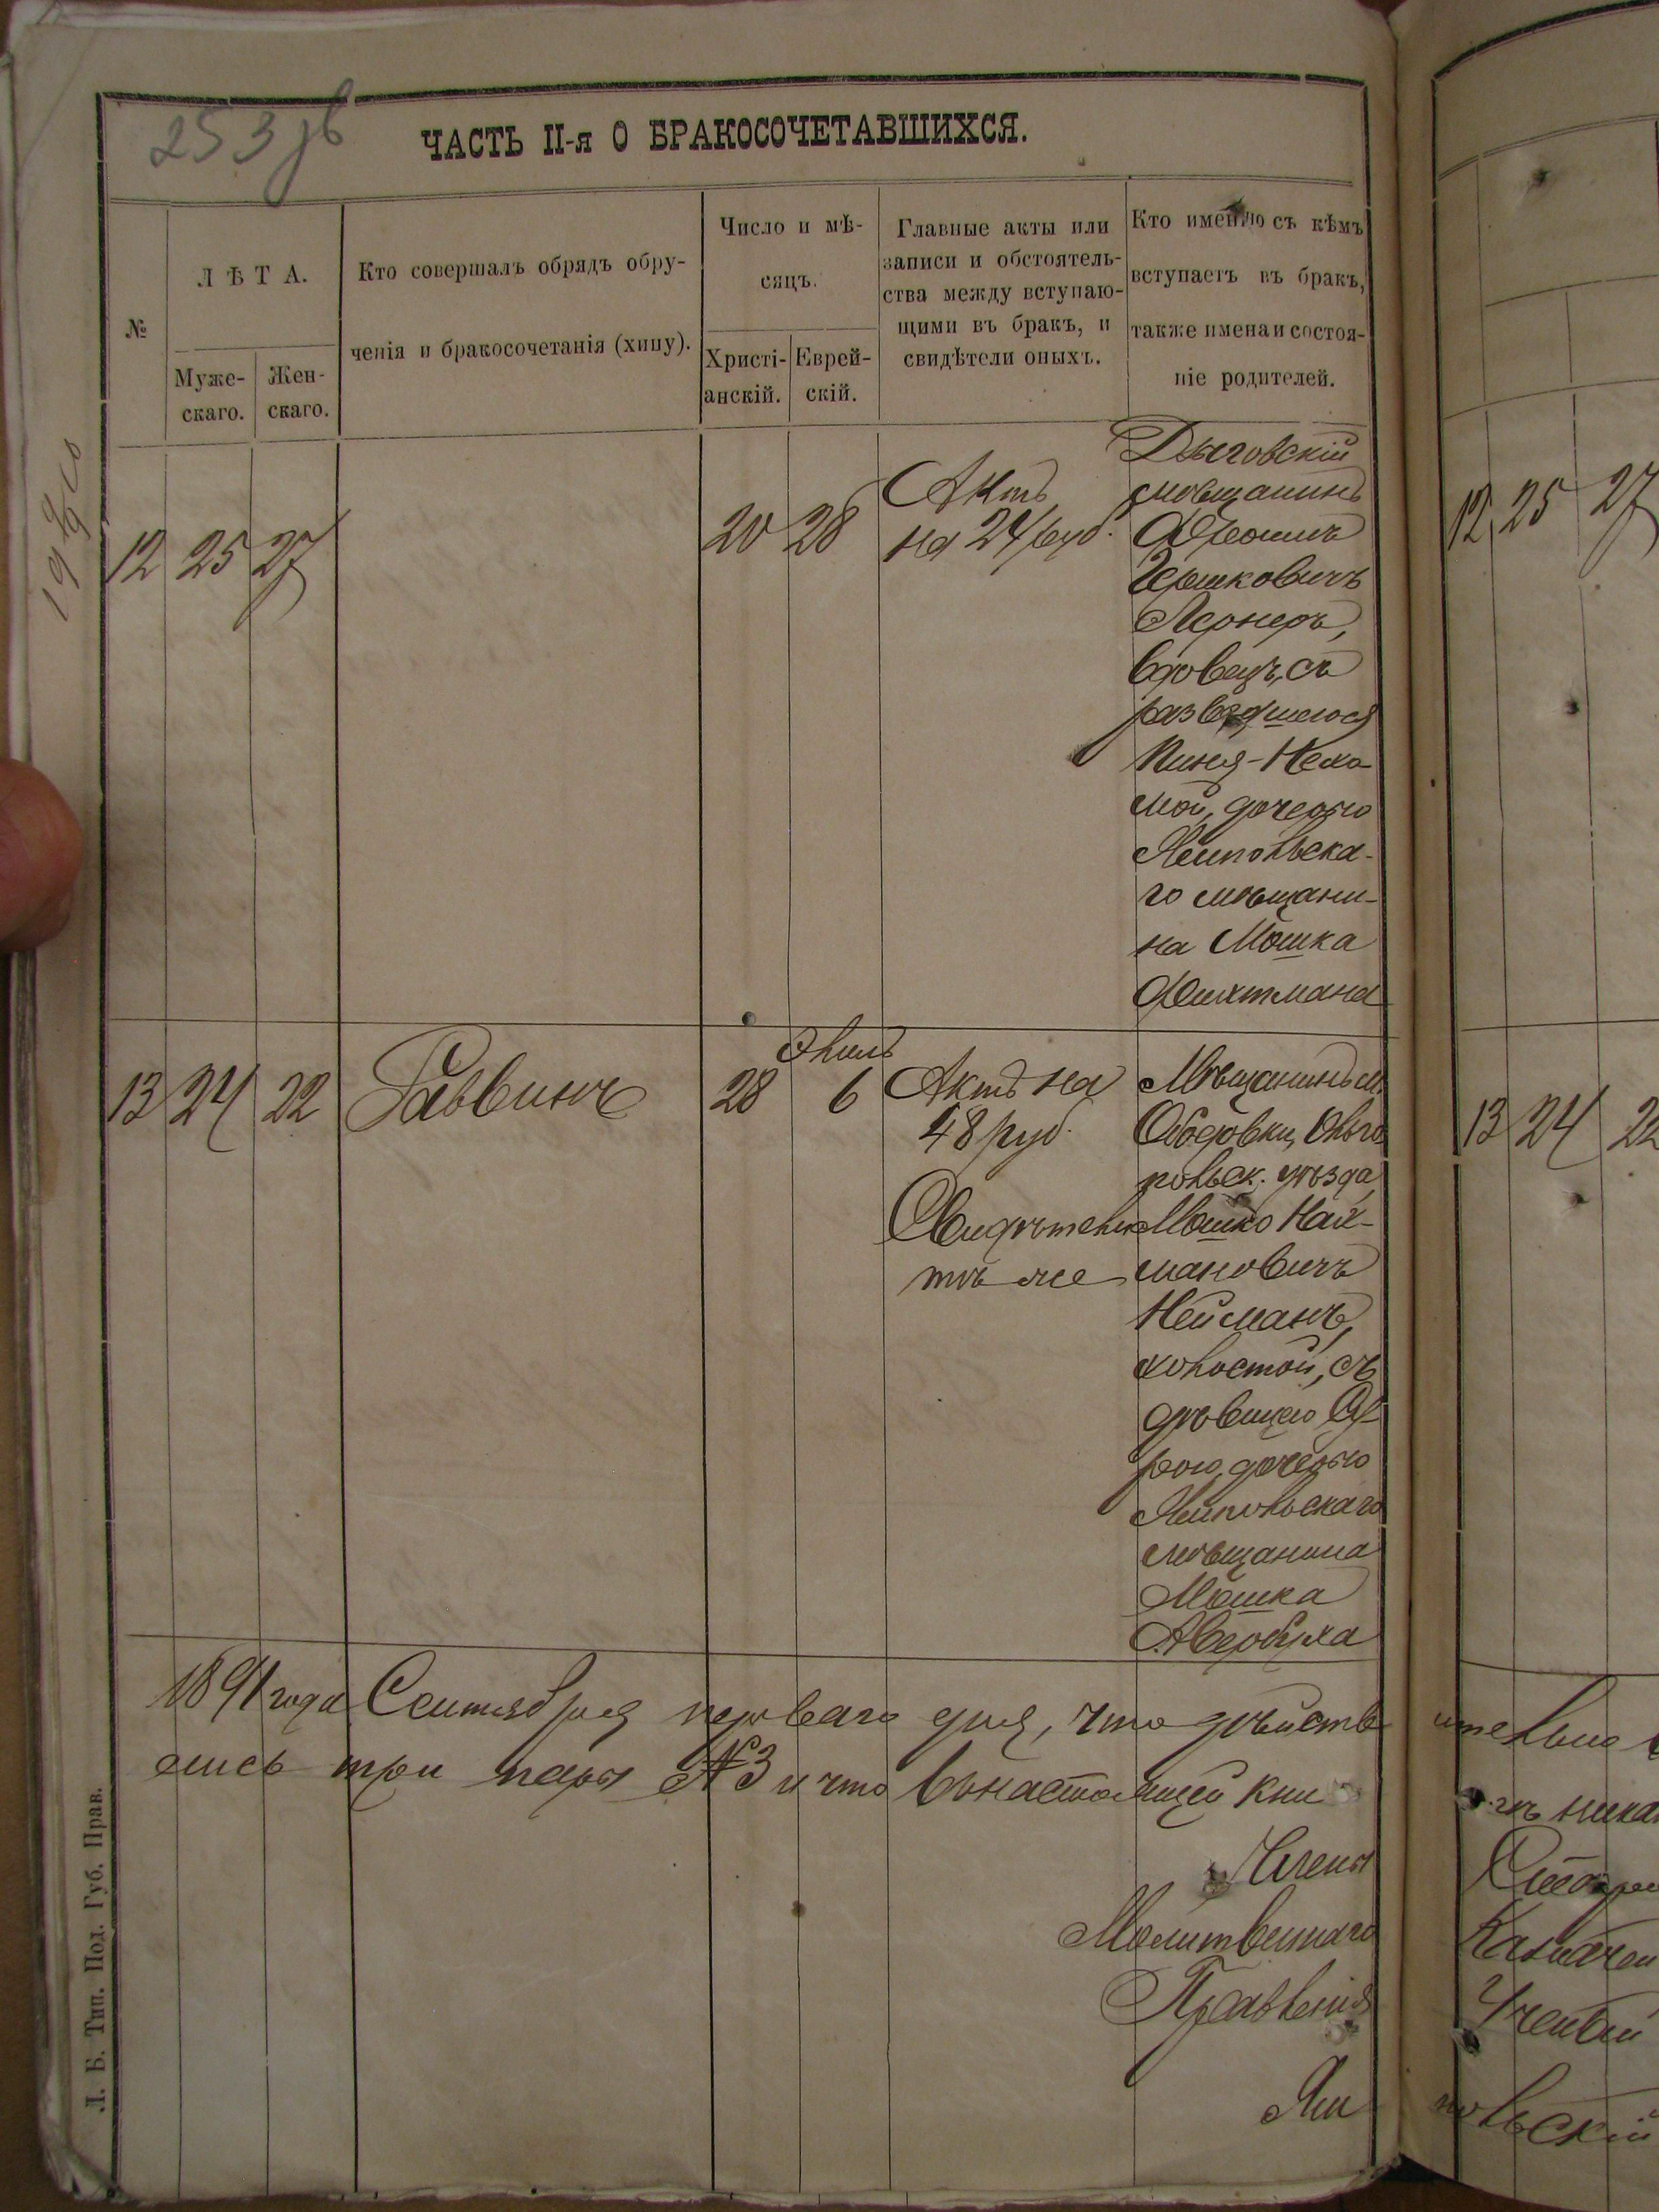 253 об
ЧАСТЬ II-я О БРАКОСОЧЕТАВШИХСЯ.
№
ЛѢТА.
Муже-
скаго.
Жен-
скаго.
Кто совершалъ обрядъ обру-
ченія и бракосочетанія (хипу).
Число и мѣ-
сяцъ.
Христі-
анскій.
Еврей-
скій.
Главные акты или
записи и обстоятель-
ства между вступаю-
щими въ бракъ, и
свидѣтели оныхъ.
Кто именно съ кѣмъ
вступаетъ въ бракъ,
также имена и состоя-
ніе родителей.
12 25 27
20 28
Актъ
на 24 руб.
мѣщанинъ
Гершковичъ
Лернеръ,
вдовецъ, съ
разведшеюся
Неха-
мой, дочерью
Ямпольска-
го мѣщани-
на Мошка
Фихтмана
13 24 22
Раввинъ
28 6
Элилъ
Актъ на
48 руб.
Свидѣтели
тѣ же
Мѣщанинъ м.
Ободовки, Ольго
польск. уѣзда,
Мошко Нах-
мановичъ
Нейманъ,
холостой, съ
дѣвицею
рою, дочерью
Ямпольскаго
мѣщанина
Мошка
Авербуха
1891 года Сентября перваго дня, что дѣйств
ительно
лись три пары №3 и что въ настоящей кни
гѣ ника
Члены
Молитвеннаго
Правленія
Ям
польскій
Казначей
Ученый
12 25 27
13 24 22
Л. Б. Тип. Под. Губ. Прав.